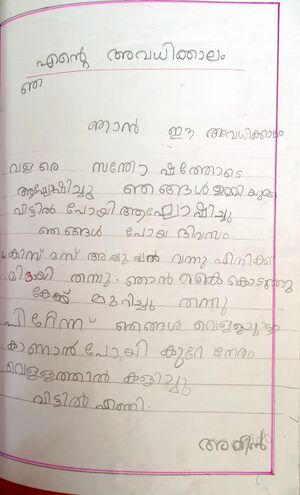 എന്റെ അവധിക്കാലം
ഞ
ഞാൻ ഈ അവധിക്കാലം
വളരെ സന്തോഷത്തോടെ
ആഘോഷിച്ചു ഞങ്ങൾ
വിട്ടിൽ പോയി ആഘോഷിച്ചു
ഞങ്ങൾ പോയ ദിവസം
വന്നു എനിക്ക്
മിഠായി തന്നു. ഞാൻ കൊടുത്തു
കേക്ക് മുറിച്ചു തന്നു
പിറ്റേന്ന് ഞങ്ങൾ വെള്ളച്ചാട്ടം
കാണാൻ പോയി കുറേ നേരം
വെള്ളത്തിൽ കളിച്ചു
വിട്ടിൽ എത്തി.